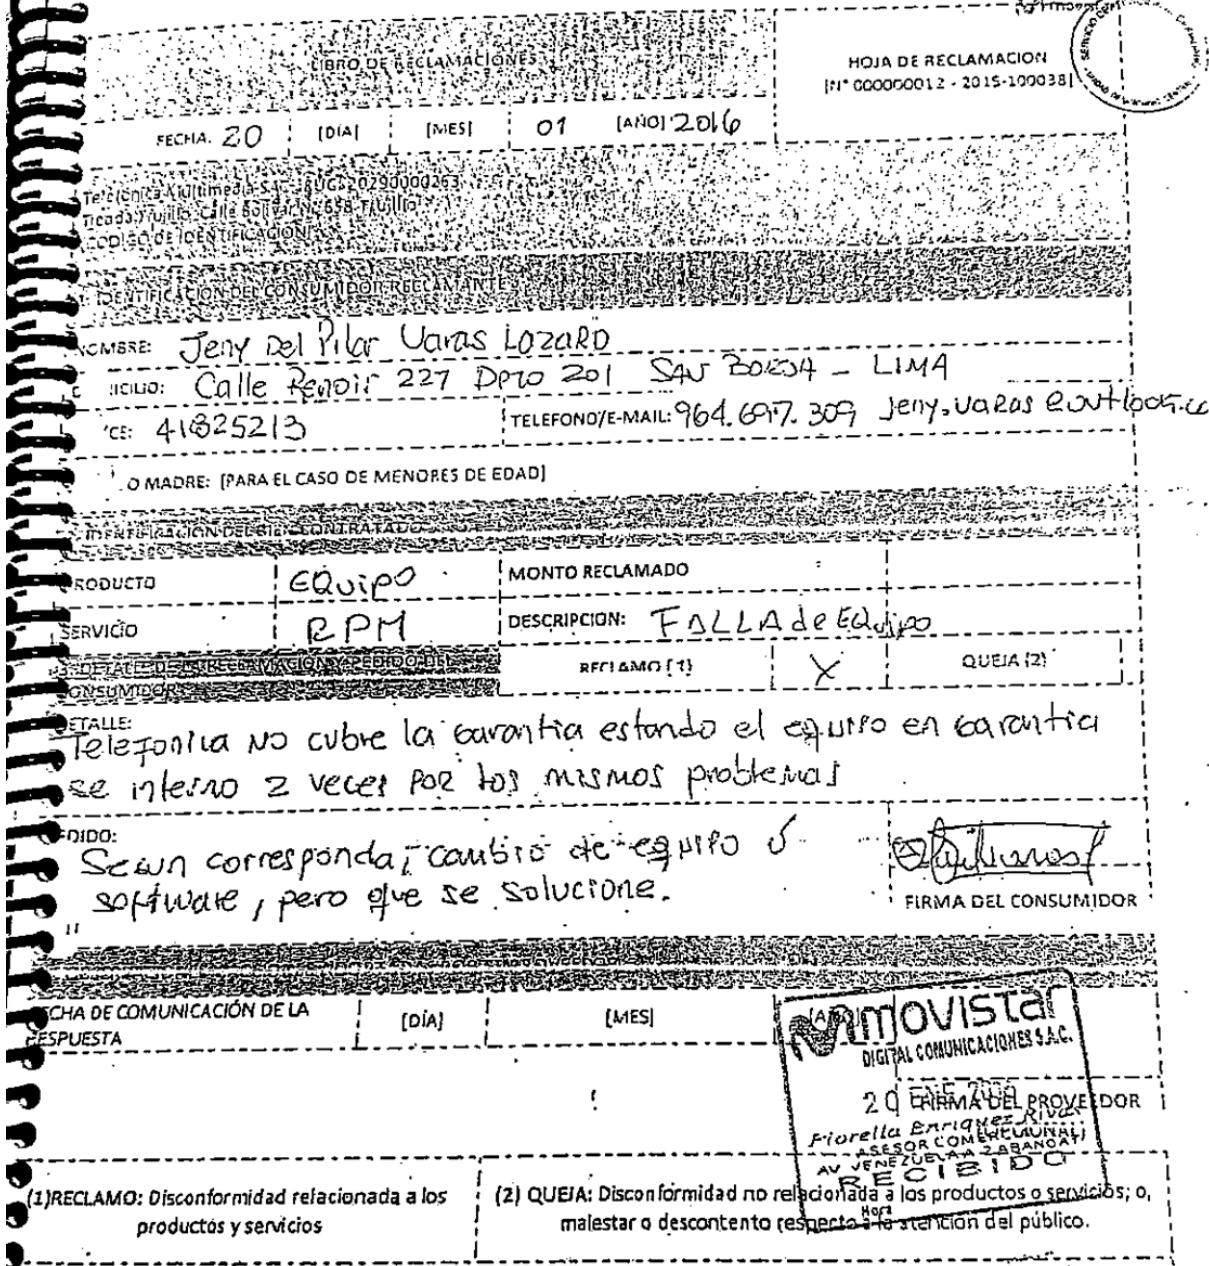 LIBRO DE RECLAMACIONES
HOJA DE RECLAMACION
[N° 000000012 - 2015-100038]
FECHA. 20 [DÍA] [MES] 01 [AÑO] 2016
Telefonica Multimedia SAC - RUC: 20290000263
Tienda Trujillo: Calle Bolivar N° 658-Trujillo
CODIGO DE IDENTIFICACION
IDENTIFICACION DEL CONSUMIDOR RECLAMANTE
NOMBRE: Jeny Del Pilar Varas Lozano
ICILIO: Calle Renoir 227 Dpto 201 SAN BORJA - LIMA
CE: 41825213 TELEFONO/E-MAIL: 964.697.309 Jeny.varas
O MADRE: [PARA EL CASO DE MENORES DE EDAD]
IDENTIFICACIÓN DEL BIEN CONTRATADO
PRODUCTO EQUIPO MONTO RECLAMADO
SERVICIO RPM DESCRIPCION: FALLA de EQuipo
3. DETALLE DE LA RECLAMACION Y PEDIDO DEL CONSUMIDOR RECLAMO [1] X QUEJA [2]
DETALLE:
Telefonica NO cubre la garantia estando el equipo en garantia
se interno 2 veces POR los mismos problemas
PEDIDO:
Segun corresponda, cambio de equipo ó
software, pero que se solucione.
FIRMA DEL CONSUMIDOR
FECHA DE COMUNICACIÓN DE LA RESPUESTA [DÍA] [MES] [AÑO]
movistar
DIGITAL COMUNICACIONES S.A.C.
20 ENE 2016
FIRMA DEL PROVEEDOR
Fiorella Enriquez Rivas
ASESOR COMERCIAL
AV VENEZUELA
RECIBIDO
Hora
(1)RECLAMO: Disconformidad relacionada a los
productos y servicios
(2) QUEJA: Disconformidad no relacionada a los productos o servicios; o,
malestar o descontento respecto a la atención del público.